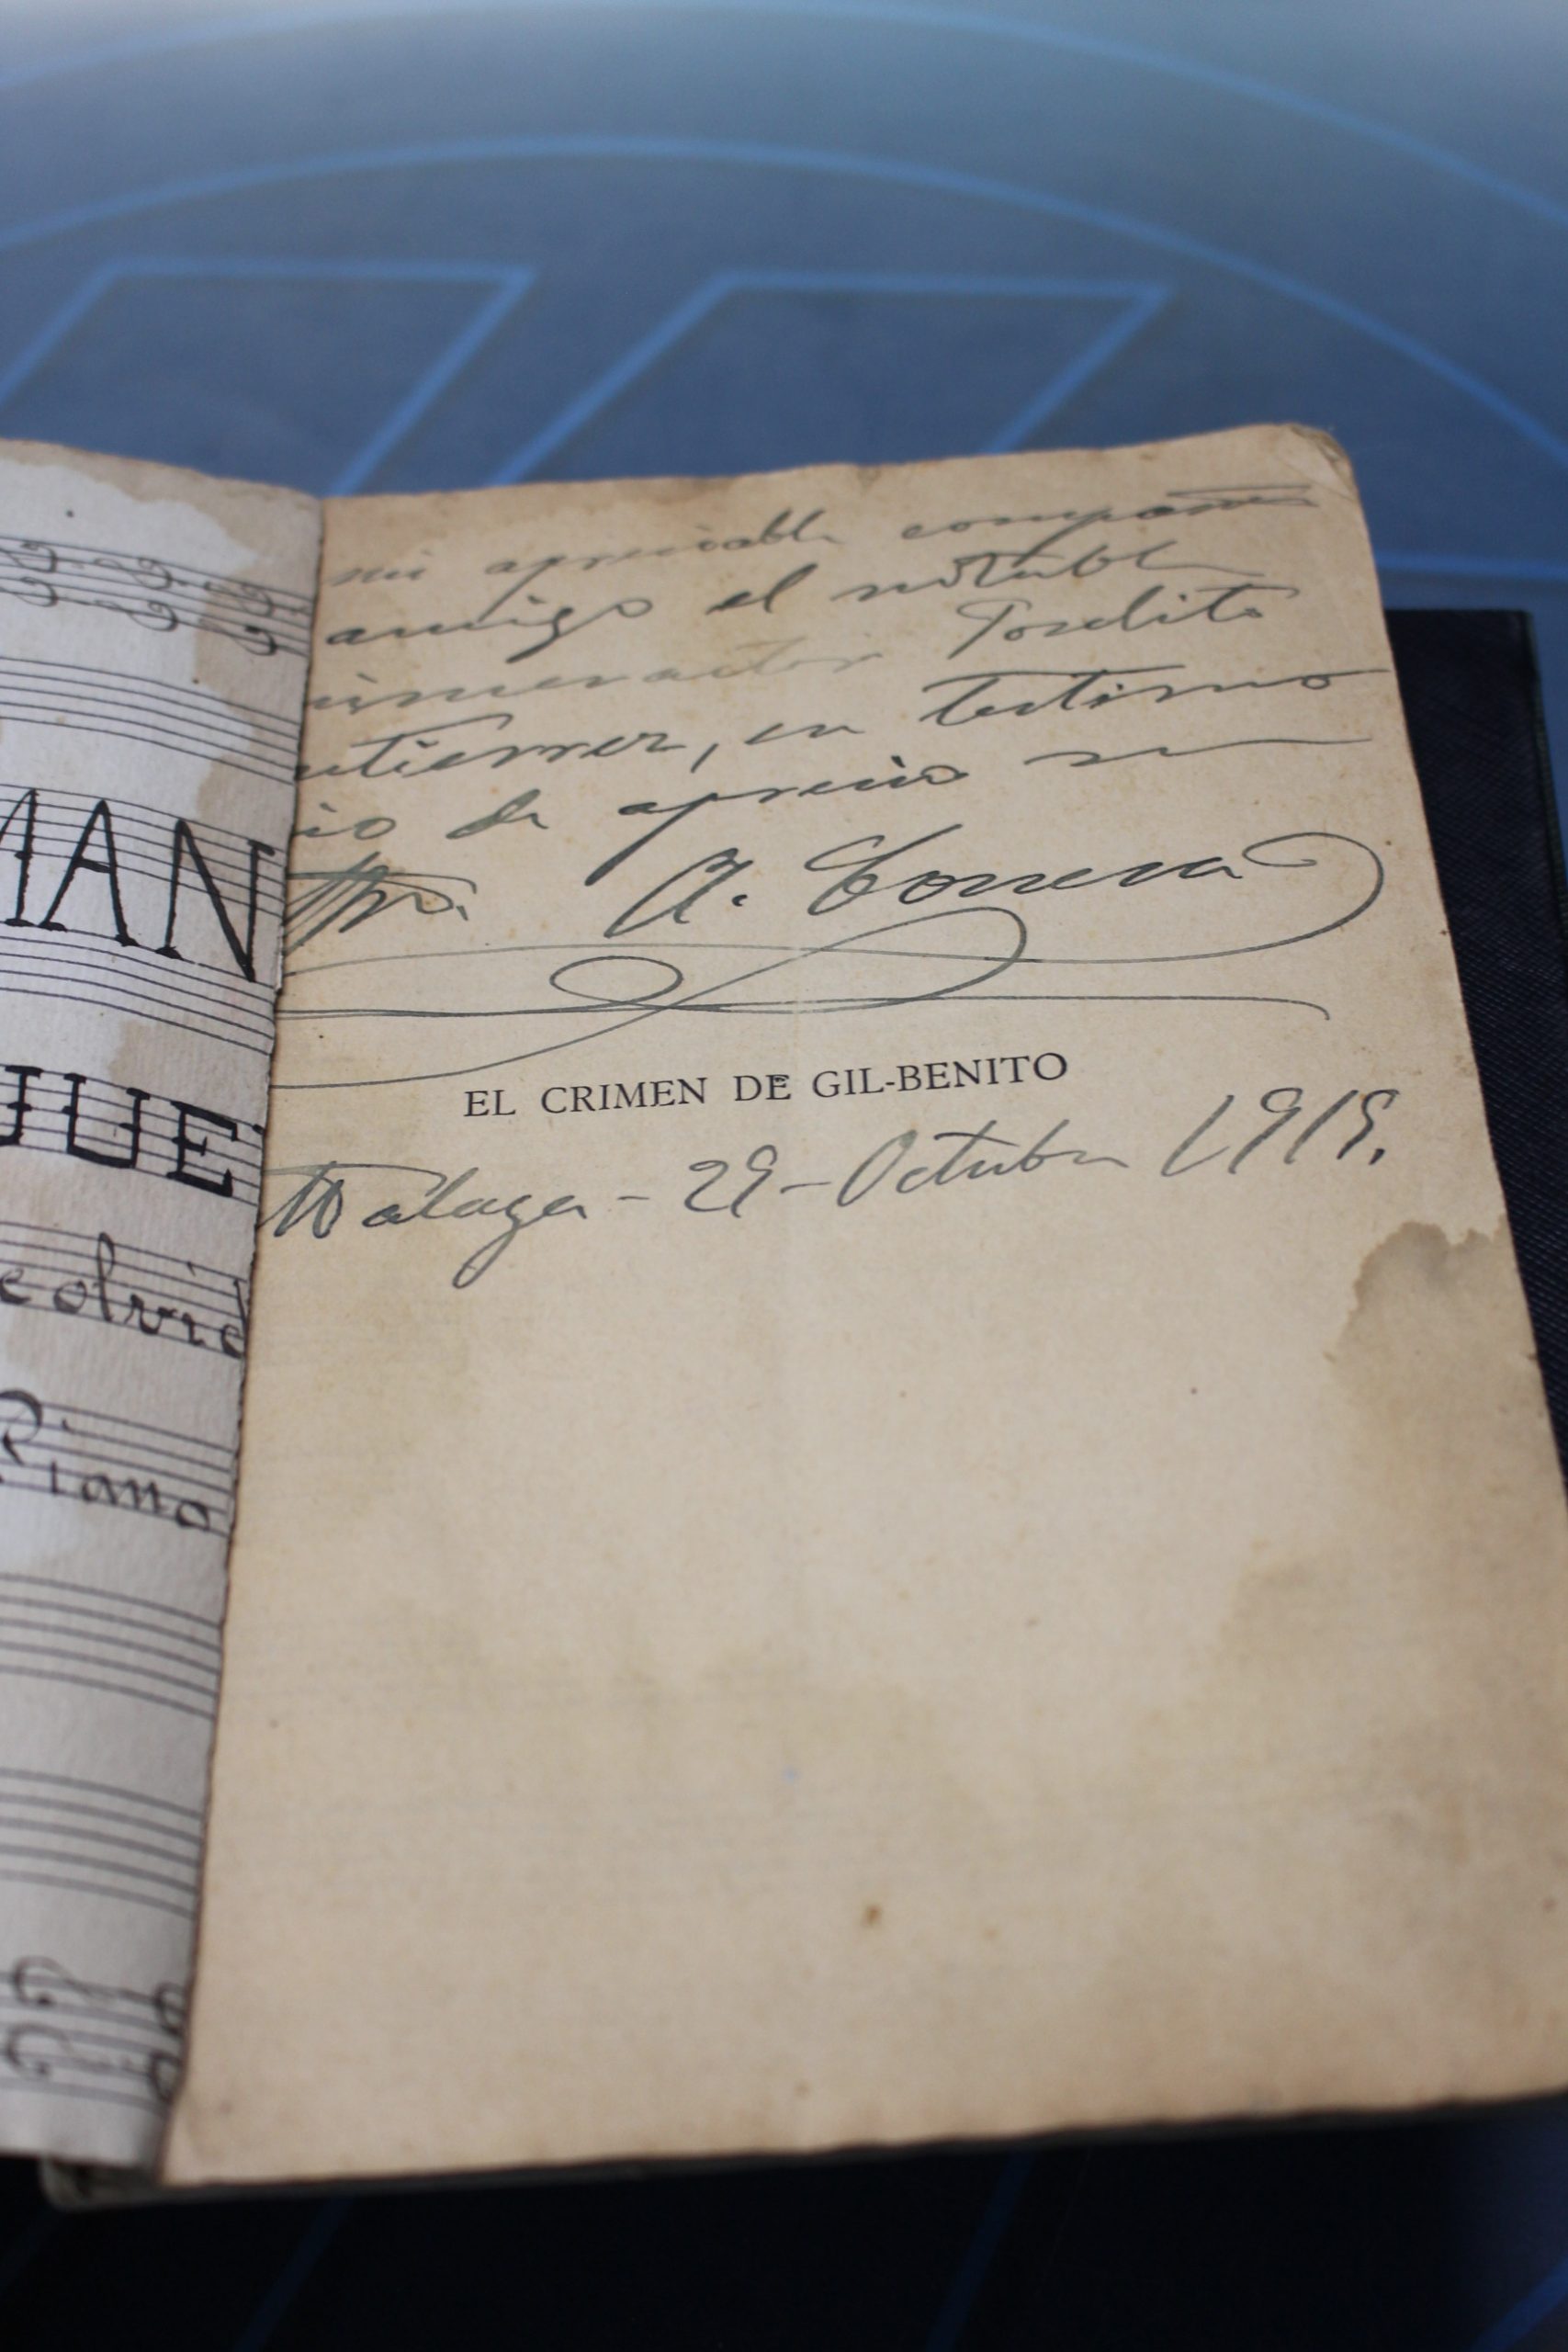 MAN
UE
e olvid
Piano
mi apreciable compañero
amigo el notable
primer actor Joselito
utierrez, en testimo
io de aprecio su
A. Correra
EL CRIMEN DE GIL-BENITO
Málaga - 29 - Octubre 1919.